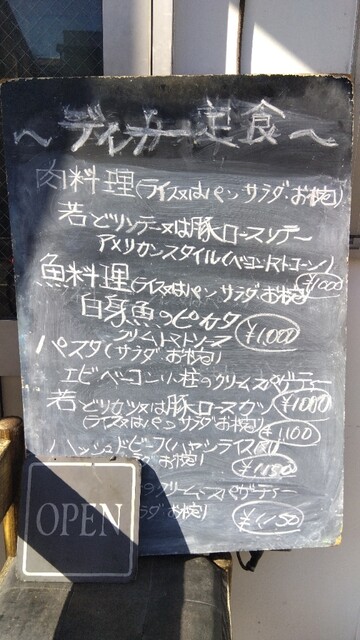 〜ディナー定食〜
肉料理(ライス又はパン サラダ・お椀)
若どりソテー又は豚ロースソテー
アメリカンスタイル(ベーコン・トマト・コーン)
¥1,000
魚料理(ライス又はパン サラダ お椀)
白身魚のピカタ
クリームトマトソース ¥1,000
パスタ(サラダ お椀)
エビ ベーコン 小柱のクリームスパゲティー
¥1000
若どりカツ又は豚ロースカツ
(ライス又はパン サラダ お椀)
¥1,100
ハッシュドビーフ(ハヤシライス)
サラダ お椀) ¥1150
のクリームスパゲティー
サラダ お椀) ¥1,150
OPEN